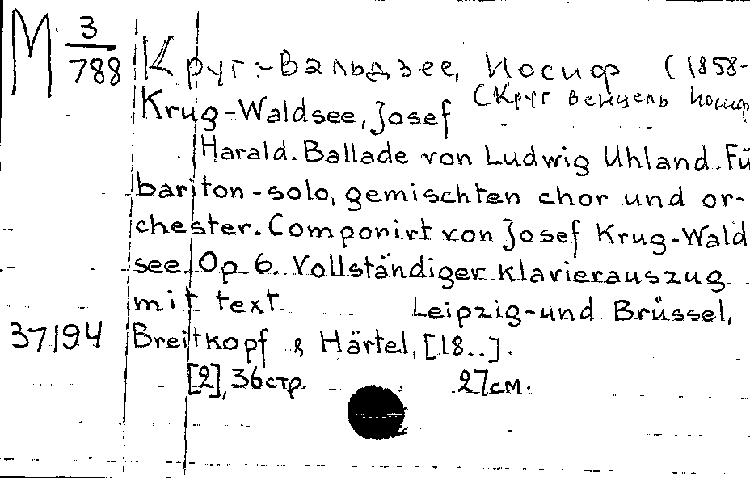 М 3/788
Круг-Вальдзее, Иосиф (1858-
(Круг Венцель Иосиф
Krug-Waldsee, Josef
Harald. Ballade von Ludwig Uhland. Fü
bariton-solo, gemischten chor und or-
chester. Componirt von Josef Krug-Wald
see. Op 6. Vollständiger klavierauszug
mit text Leipzig-und Brüssel,
37194 Breitkopf & Härtel, [18..].
[2], 36 стр. 27 см.